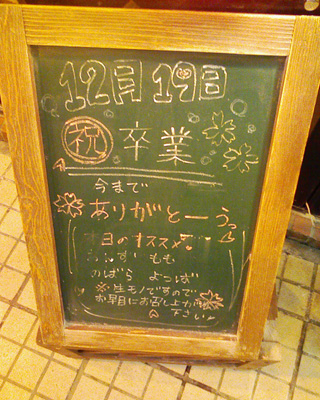 12月19日
祝 卒業
今まで
ありがとーう
本日のオススメ
もも
のばら よつば
※生モノですので
お早目にお召し上がり
下さい